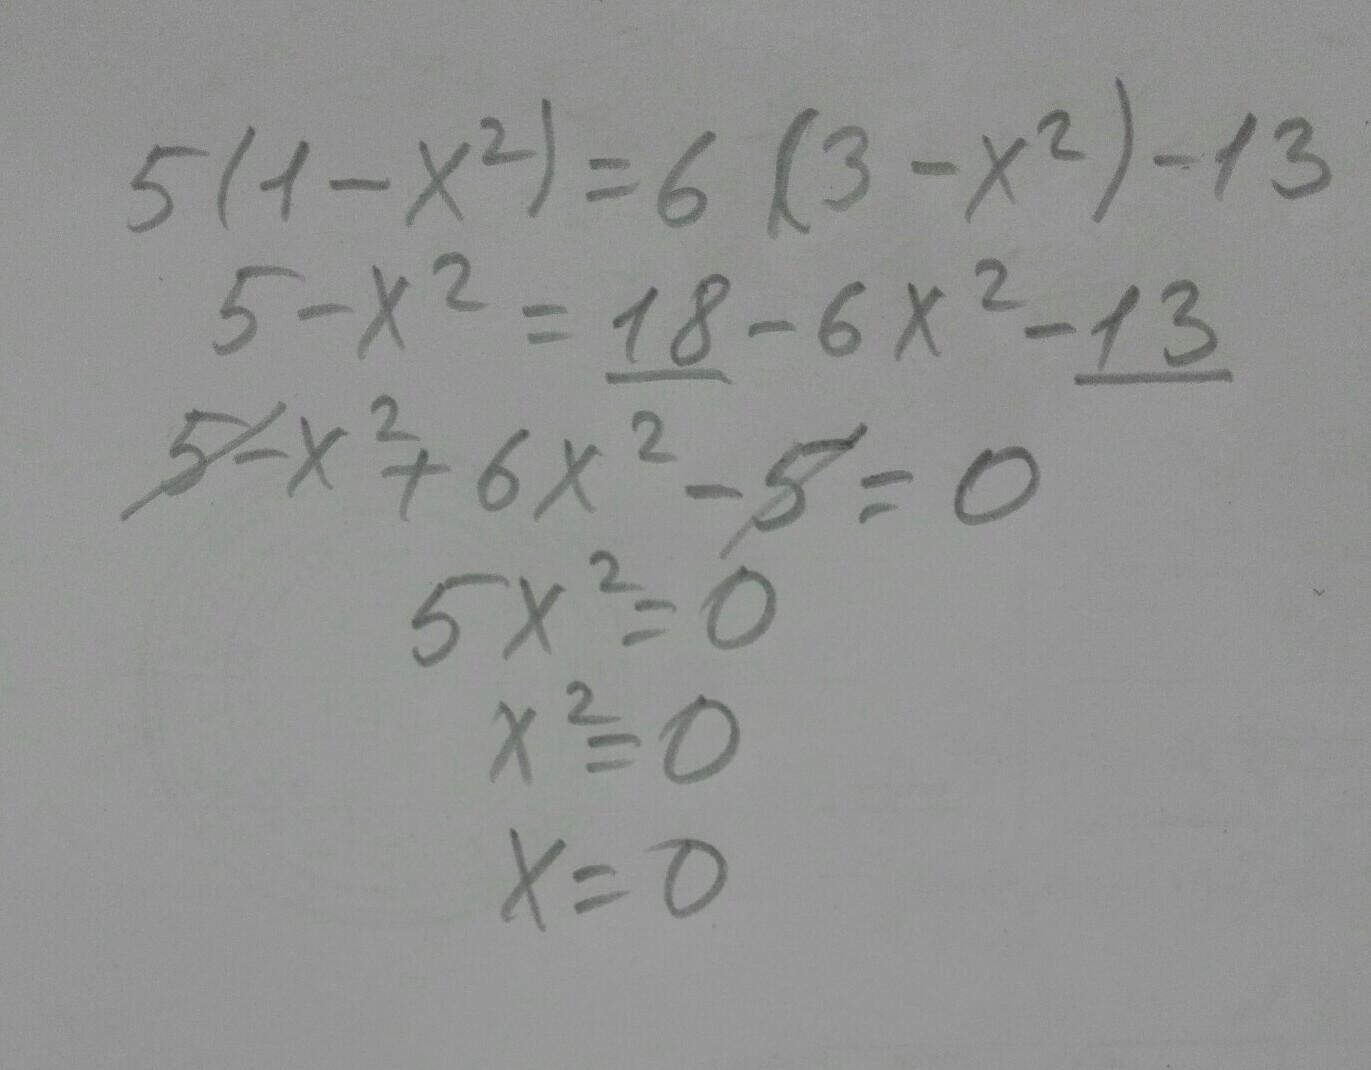 5(1-x²)=6(3-x²)-13
5-x²=18-6x²-13
5-x²+6x²-5=0
5x²=0
x²=0
x=0